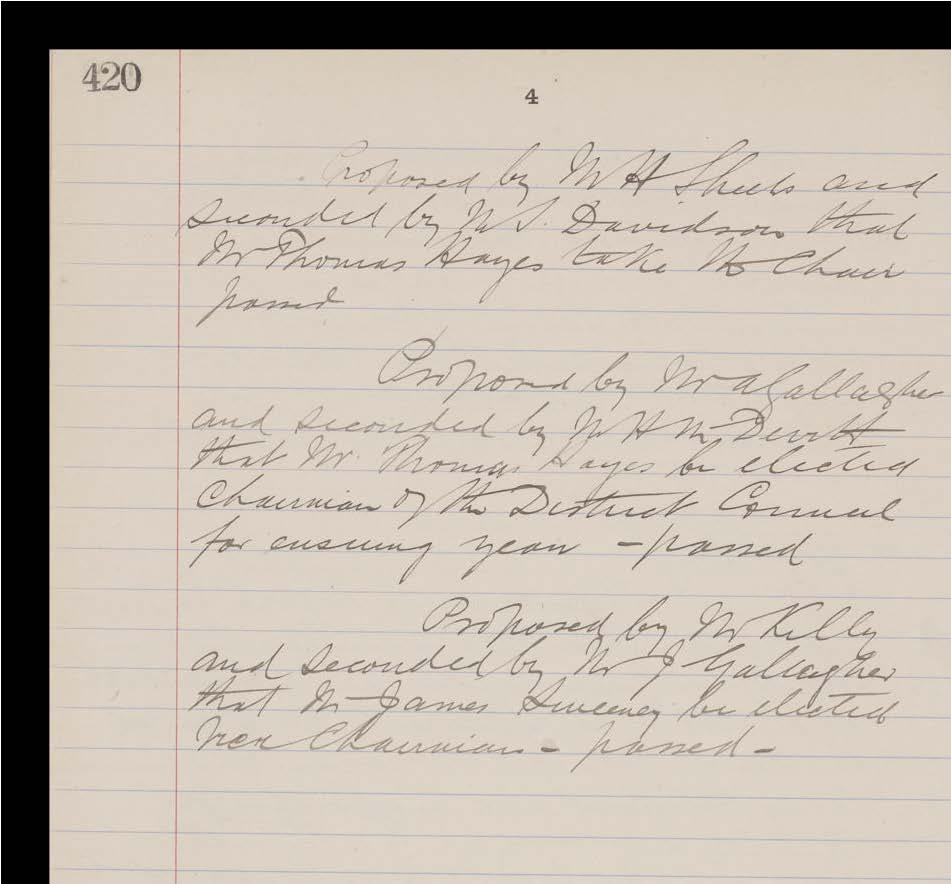 420
4
Proposed by Mr H Sheels and
seconded by Mr S. Davidson that
Mr Thomas Hayes take the Chair
passed
Proposed by Mr A Gallagher
and seconded by Mr H McDevitt
that Mr. Thomas Hayes be elected
Chairman of the District Council
for ensuing year - passed
Proposed by Mr Kelly
and seconded by Mr J Gallagher
that Mr James Sweeney be elected
Vice Chairman - passed -